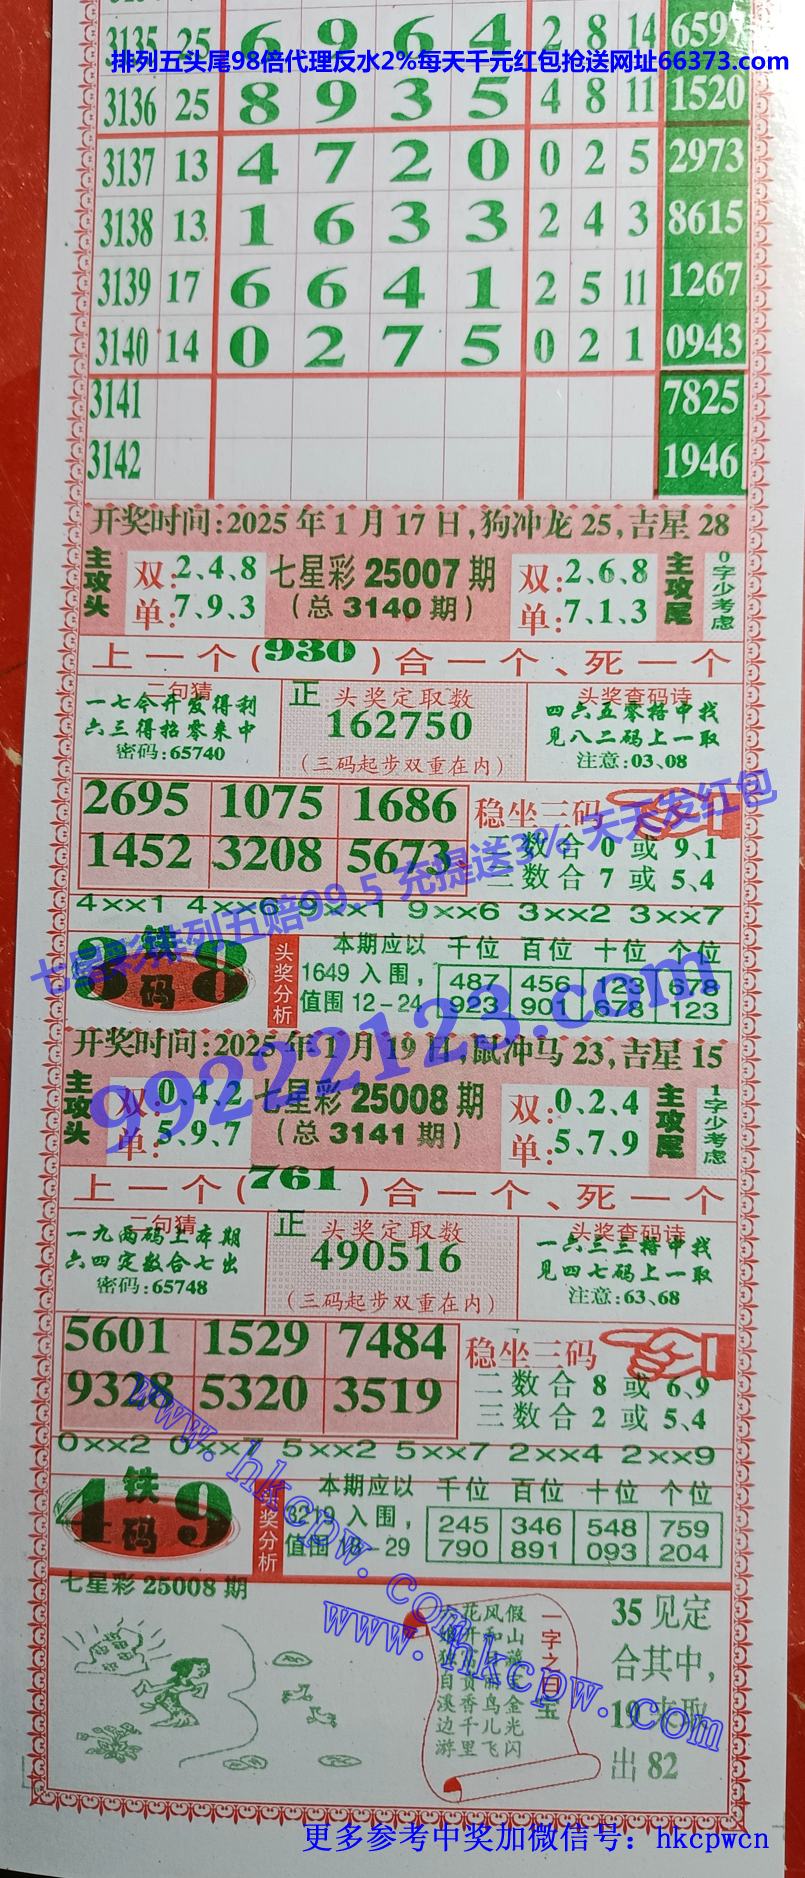 3135 25 6 9 6 4 2 8 14 6597
排列五头尾98倍代理反水2%每天千元红包抢送网址66373.com
3136 25 8 9 3 5 4 8 11 1520
3137 13 4 7 2 0 0 2 5 2973
3138 13 1 6 3 3 2 4 3 8615
3139 17 6 6 4 1 2 5 11 1267
3140 14 0 2 7 5 0 2 1 0943
3141 7825
3142 1946
开奖时间:2025年1月17日,狗冲龙25,吉星28
主攻头 双:2、4、8 七星彩25007期 双:2、6、8 主攻尾 0字少考虑
单:7、9、3 (总3140期) 单:7、1、3
上一个(930)合一个、死一个
二句猜 正 头奖定取数 头奖查码诗
一七令开发得利 162750 四六五零搭中找
六三得拾零来中 见八二码上一取
密码:65740 (三码起步双重在内) 注意:03、08
2695 1075 1686 稳坐三码
1452 3208 5673 二数合0或9、1
三数合7或5、4
4××1 4××6 9××1 9××6 3××2 3××7
七星彩排列五赔99.5 充提送3% 天天发红包
3铁码8 头奖分析 本期应以 千位 百位 十位 个位
1649入围, 487 456 123 678
值围12-24 923 901 678 123
99222123.com
开奖时间:2025年1月19日,鼠冲马23,吉星15
主攻头 双:0、4、2 七星彩25008期 双:0、2、4 主攻尾 1字少考虑
单:5、9、7 (总3141期) 单:5、7、9
上一个(761)合一个、死一个
二句猜 正 头奖定取数 头奖查码诗
一九两码上本期 490516 一六三三搭中找
六四定数合七出 见四七码上一取
密码:65748 (三码起步双重在内) 注意:63、68
5601 1529 7484 稳坐三码
9328 5320 3519 二数合8或6、9
三数合2或5、4
0××2 0××7 5××2 5××7 2××4 2××9
4铁码9 头奖分析 本期应以 千位 百位 十位 个位
3219入围, 245 346 548 759
值围18-29 790 891 093 204
www.hkcpw.com
七星彩25008期
一字之曰宝
假山藏宝金光闪
风和日丽鸟儿飞
花开富贵香千里
自溪边游
35见定
合其中,
19来取
出82
www.hkcpw.com
更多参考中奖加微信号：hkcpwcn